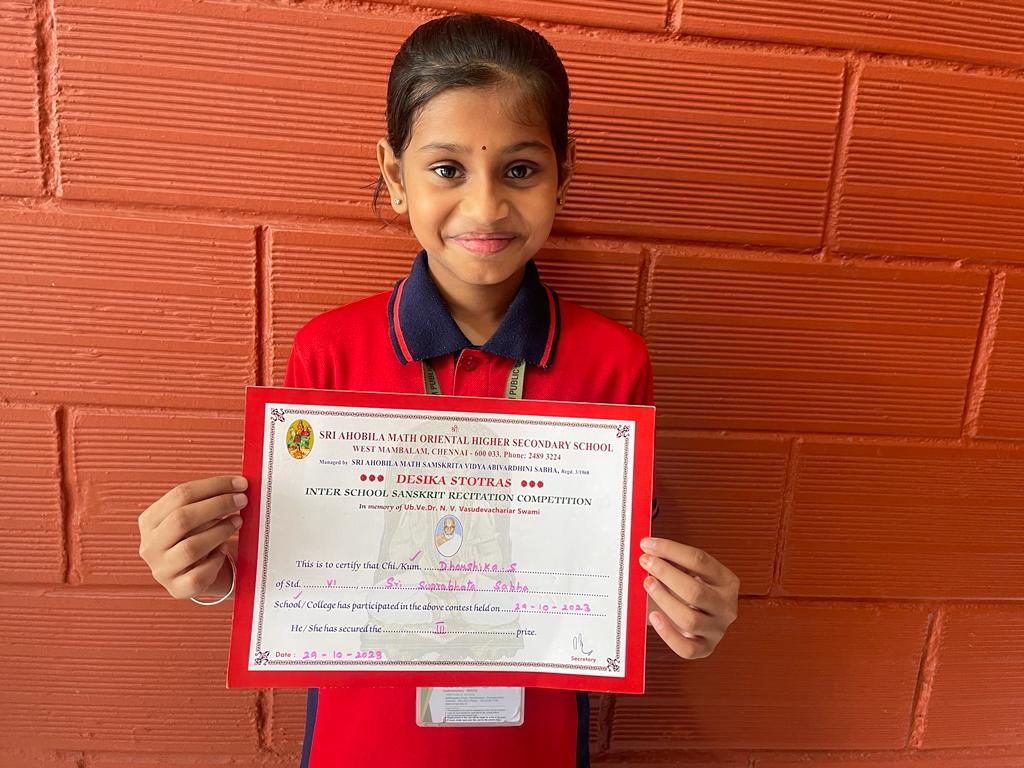 PUBLIC
श्रीः
SRI AHOBILA MATH ORIENTAL HIGHER SECONDARY SCHOOL
WEST MAMBALAM, CHENNAI - 600 033. Phone: 2489 3224
Managed by SRI AHOBILA MATH SAMSKRITA VIDYA ABIVARDHINI SABHA, Regd. 3/1968
DESIKA STOTRAS
INTER SCHOOL SANSKRIT RECITATION COMPETITION
In memory of Ub.Ve.Dr. N. V. Vasudevachariar Swami
This is to certify that Chi./Kum. Dhanshika S
of Std. VI Sri Suprabhata Sabha
School / College has participated in the above contest held on 29-10-2023
He / She has secured the III prize.
Date : 29-10-2023
Secretary